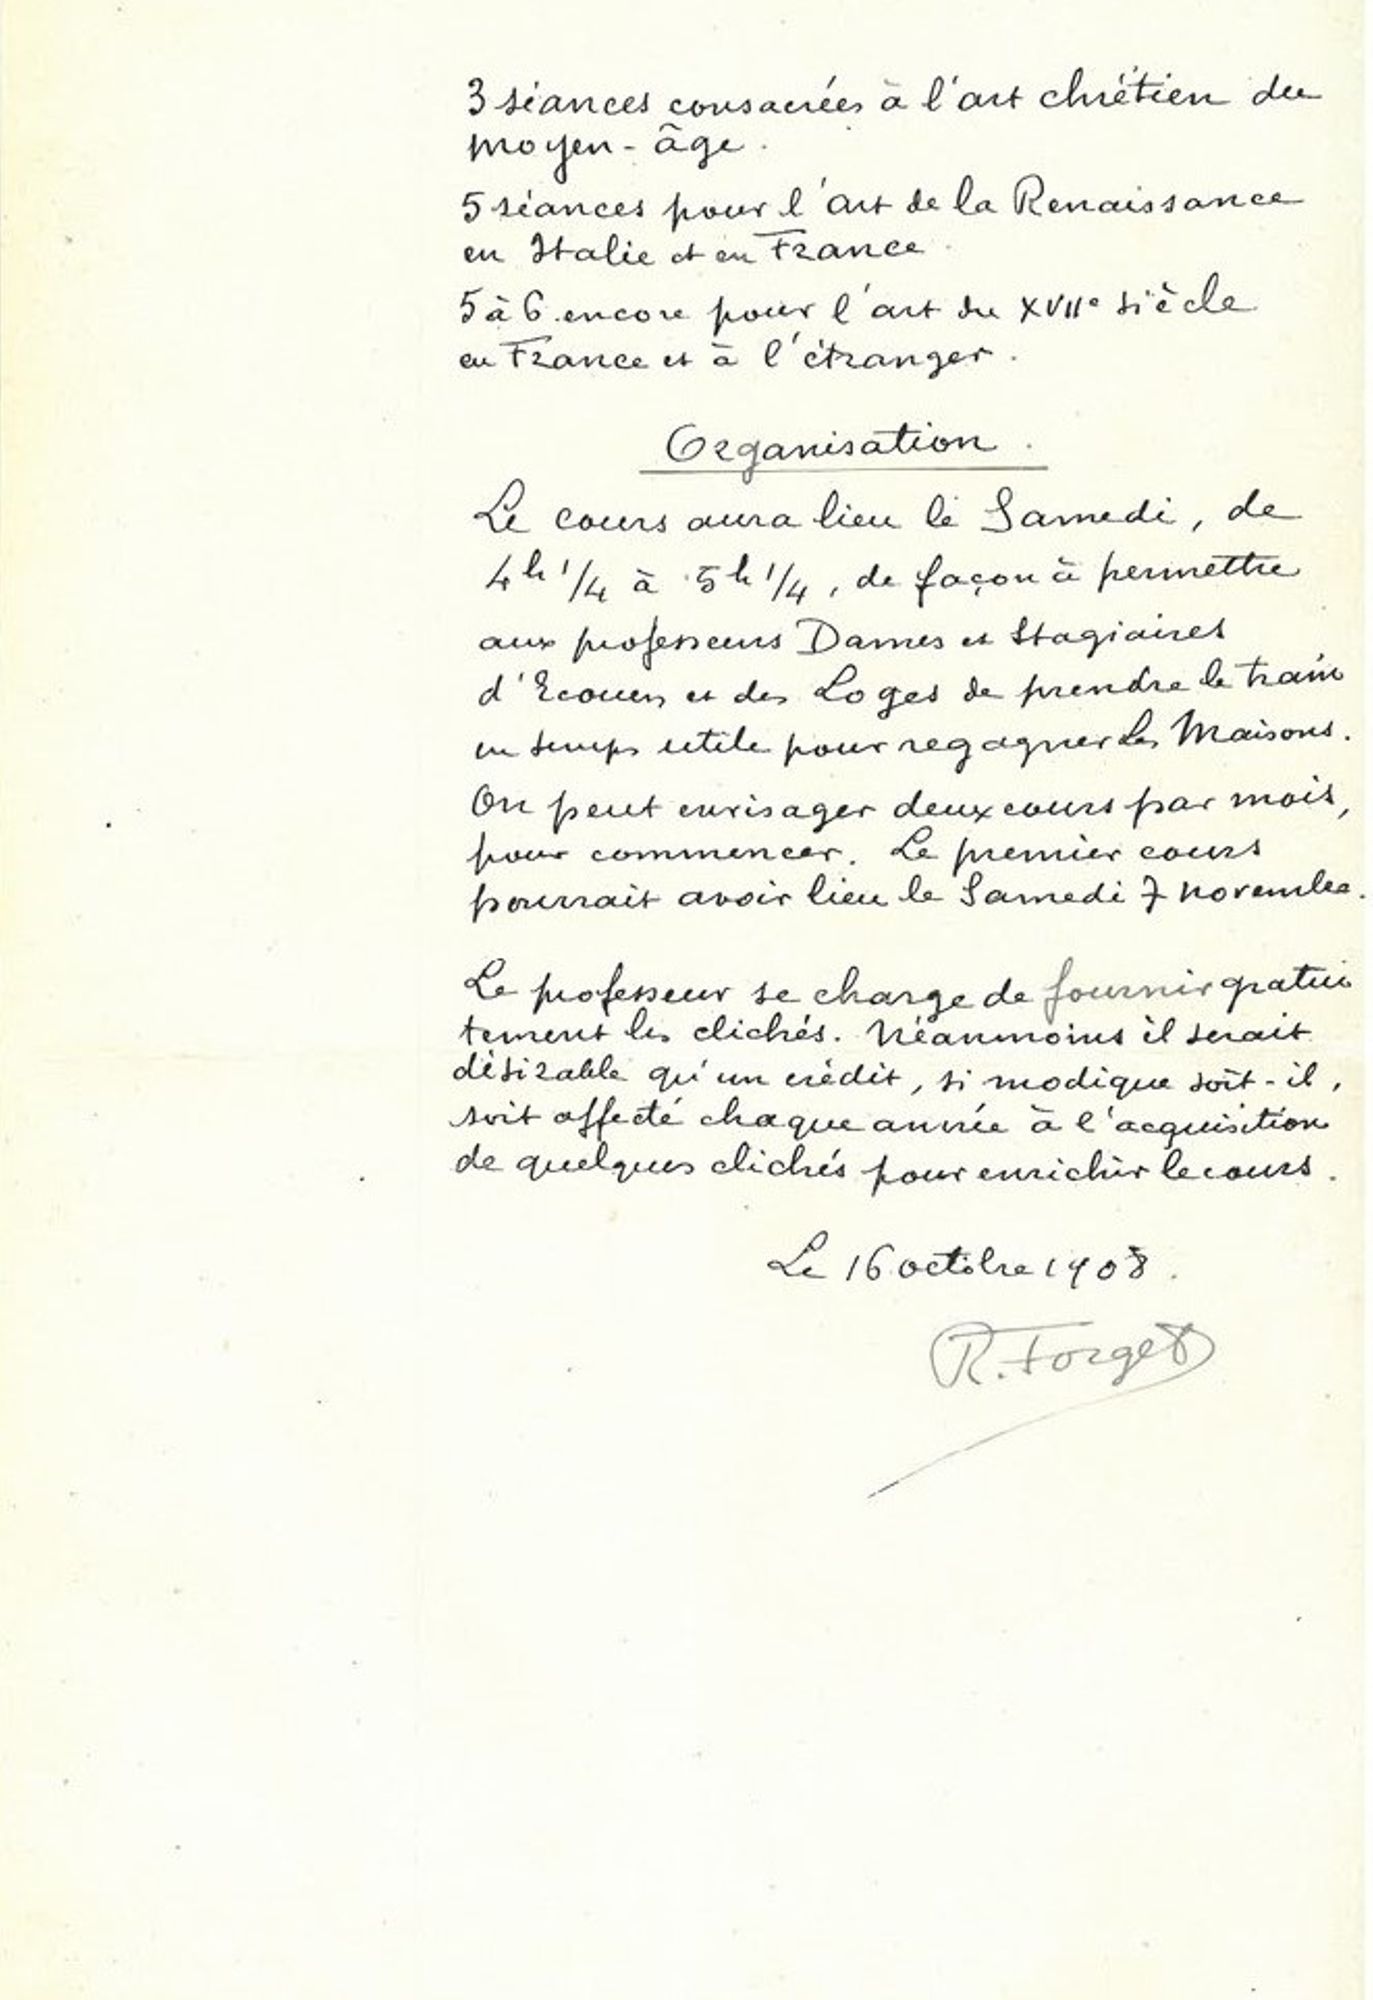 3 séances consacrées à l'art chrétien du
moyen-âge.
5 séances pour l'art de la Renaissance
en Italie et en France.
5 à 6 encore pour l'art du XVIIe siècle
en France et à l'étranger.
Organisation.
Le cours aura lieu le Samedi, de
4h 1/4 à 5h 1/4, de façon à permettre
aux professeurs Dames et Stagiaires
d'Ecouen et des Loges de prendre le train
en temps utile pour regagner les Maisons.
On peut envisager deux cours par mois,
pour commencer. Le premier cours
pourrait avoir lieu le Samedi 7 novembre.
Le professeur se charge de fournir gratui
tement les clichés. Néanmoins il serait
désirable qu'un crédit, si modique soit-il,
soit affecté chaque année à l'acquisition
de quelques clichés pour enrichir le cours.
Le 16 octobre 1908.
R. Forget